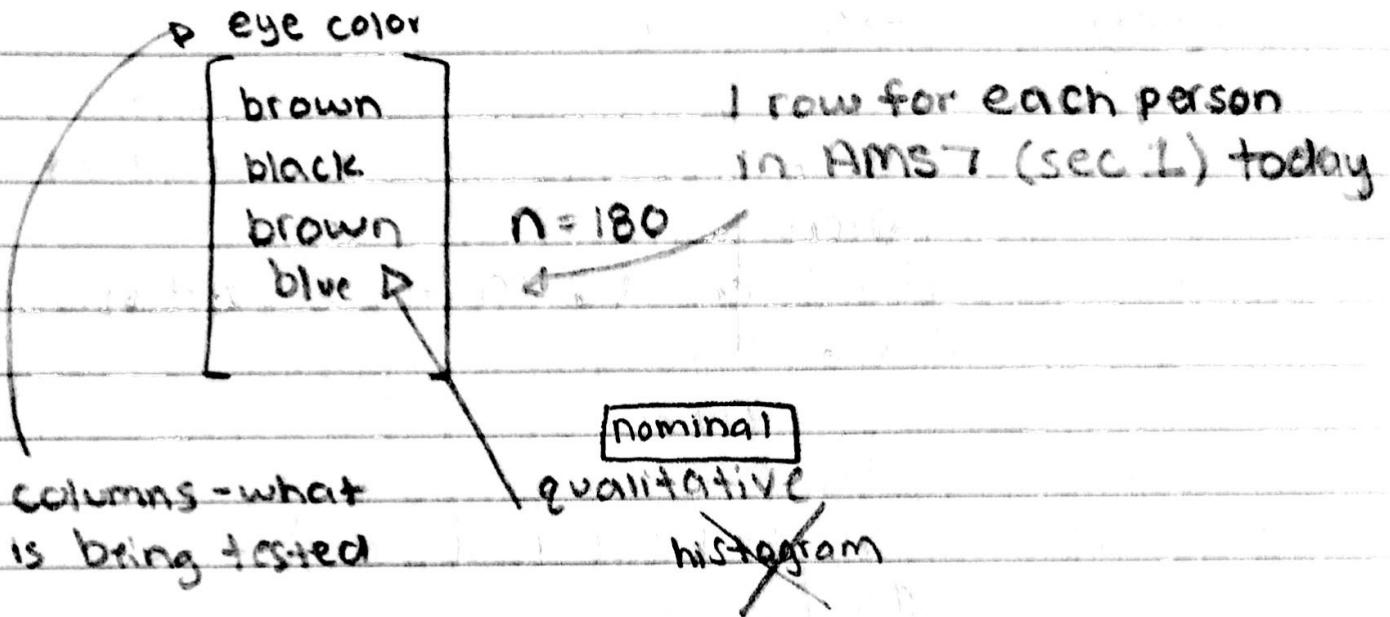 eye color
brown
black
brown
blue
n = 180
1 row for each person
in AMS 7 (sec 1) today
columns - what
is being tested
nominal
qualitative
histogram